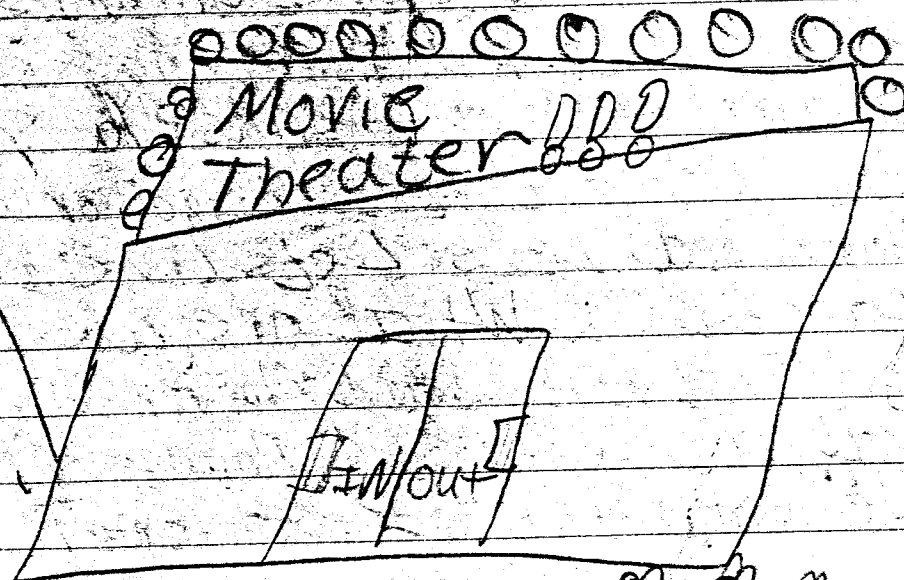 Movie
Theater!!!
IN/OUt